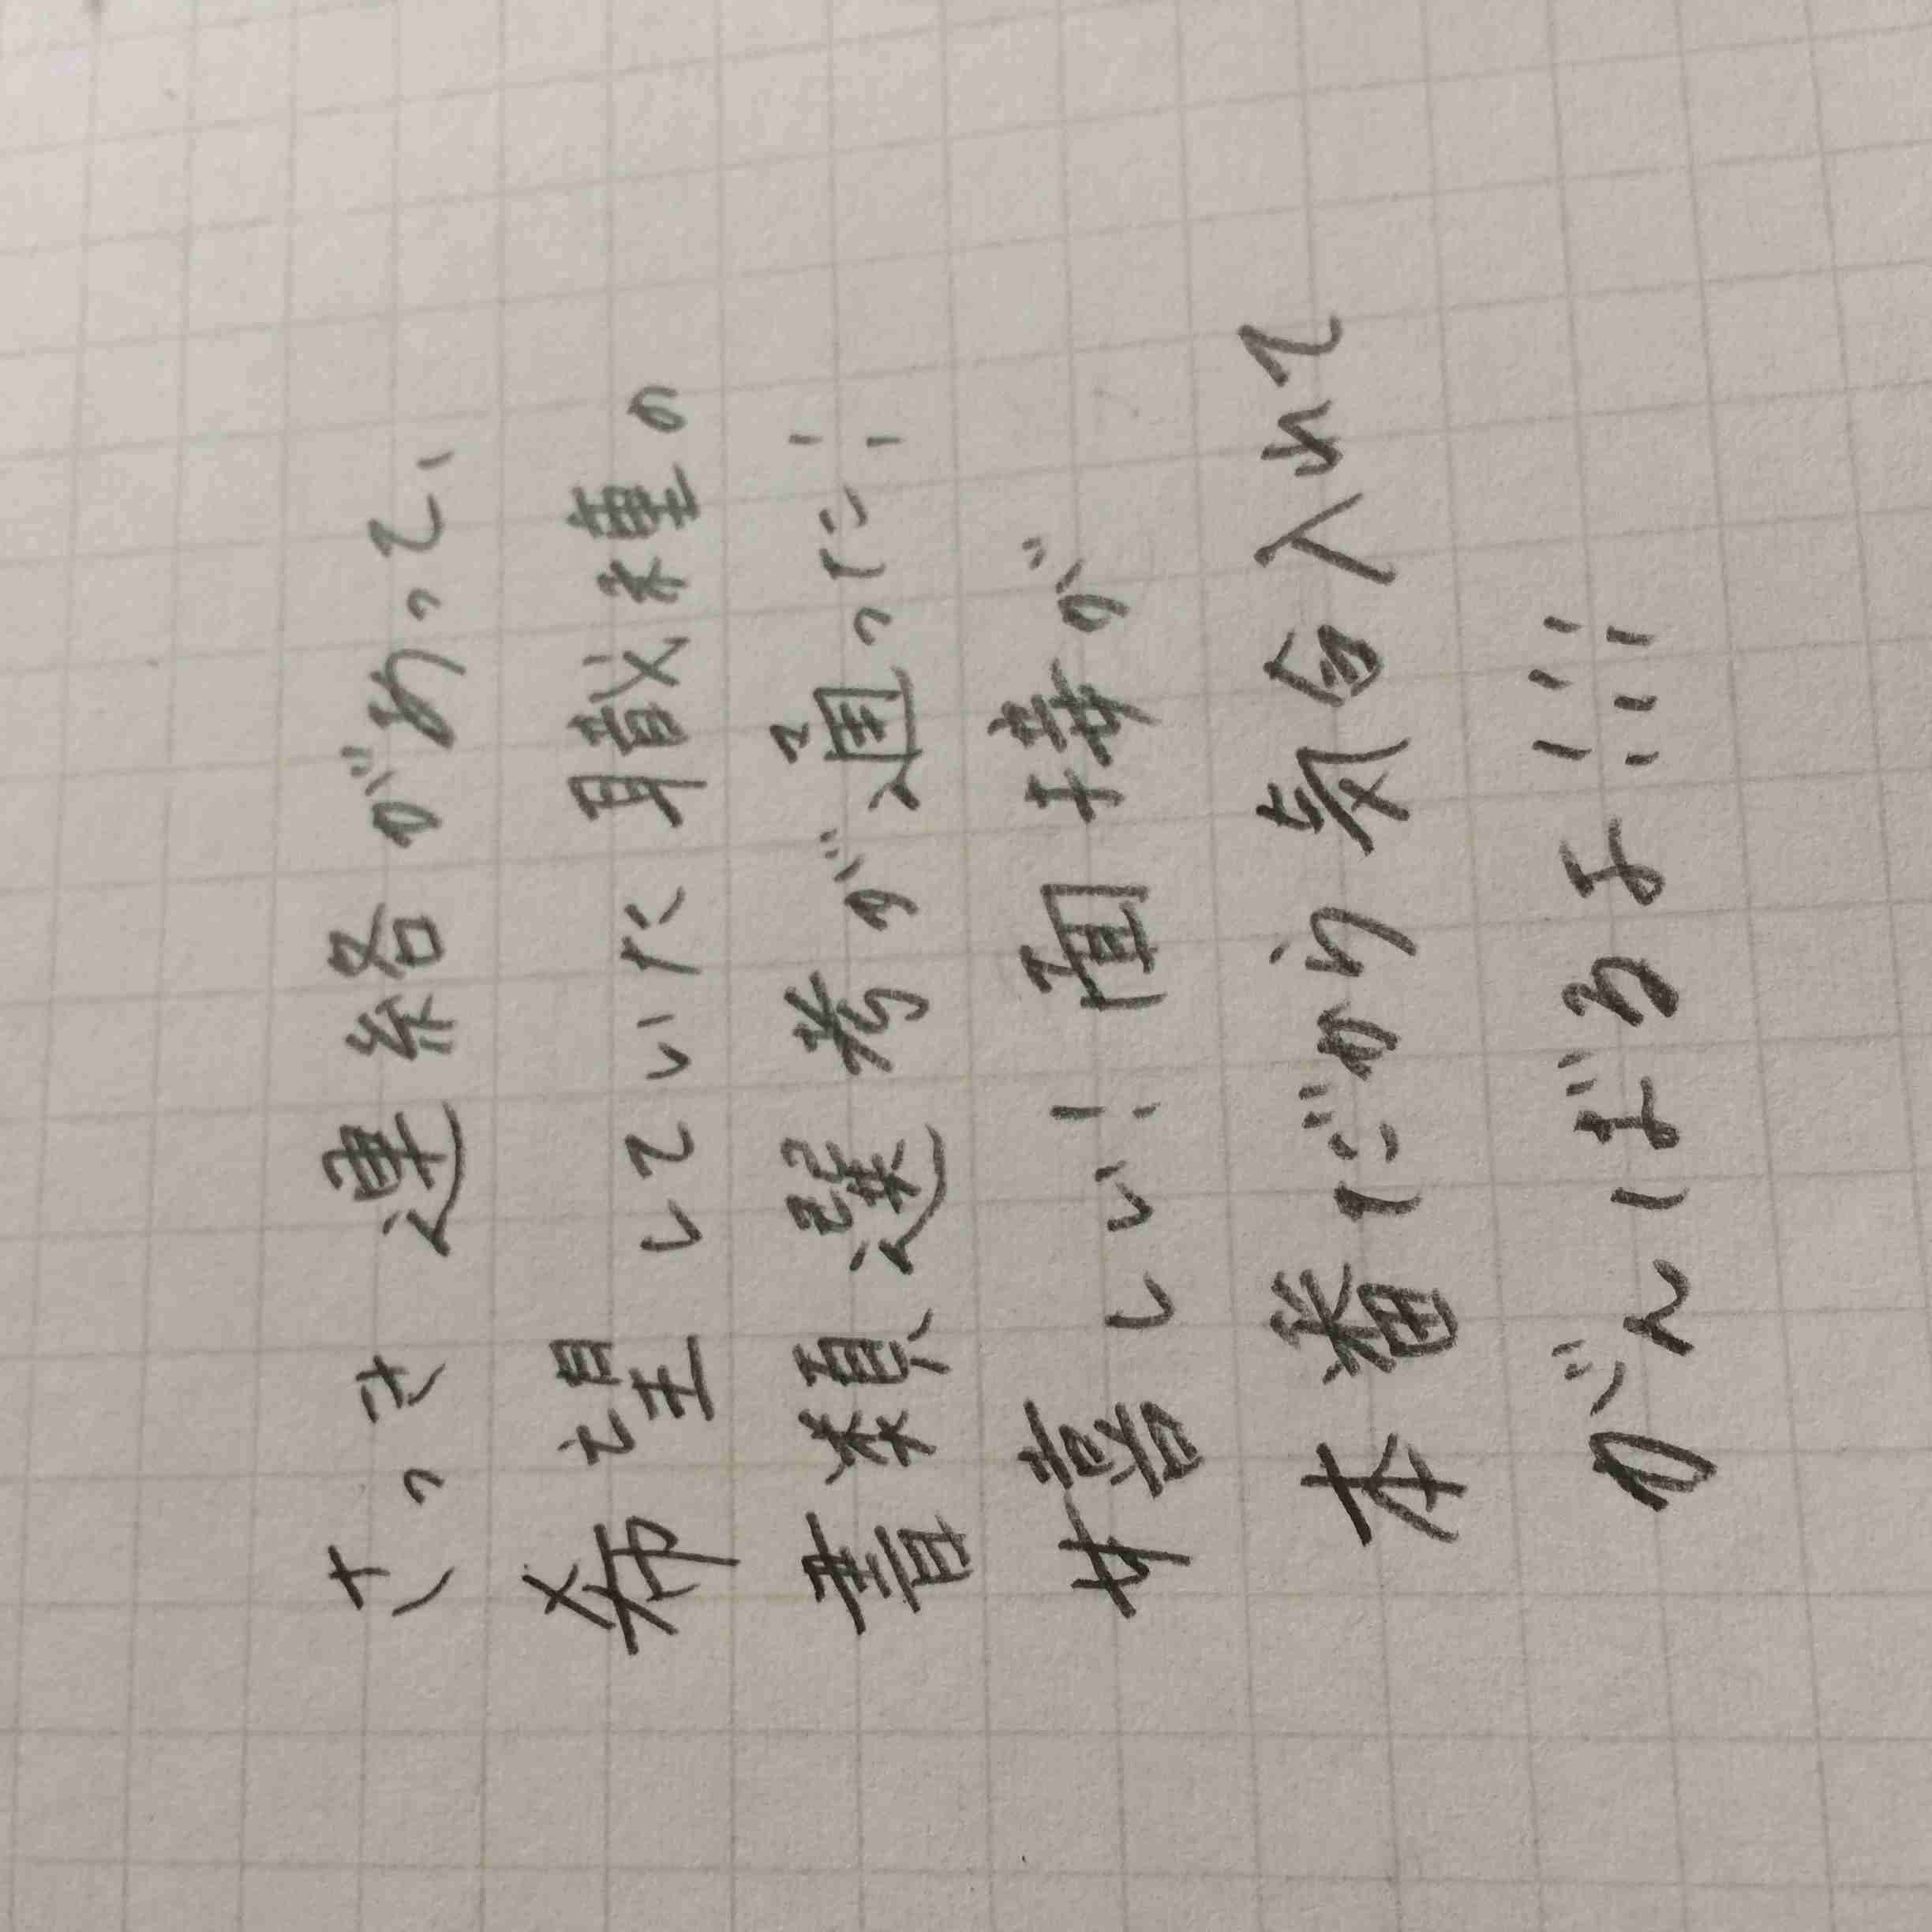 さっき連絡があって、
希望していた職種の
書類選考が通った!!
嬉しい!! 面接が
本番だから気合入れて
がんばるよ!!!